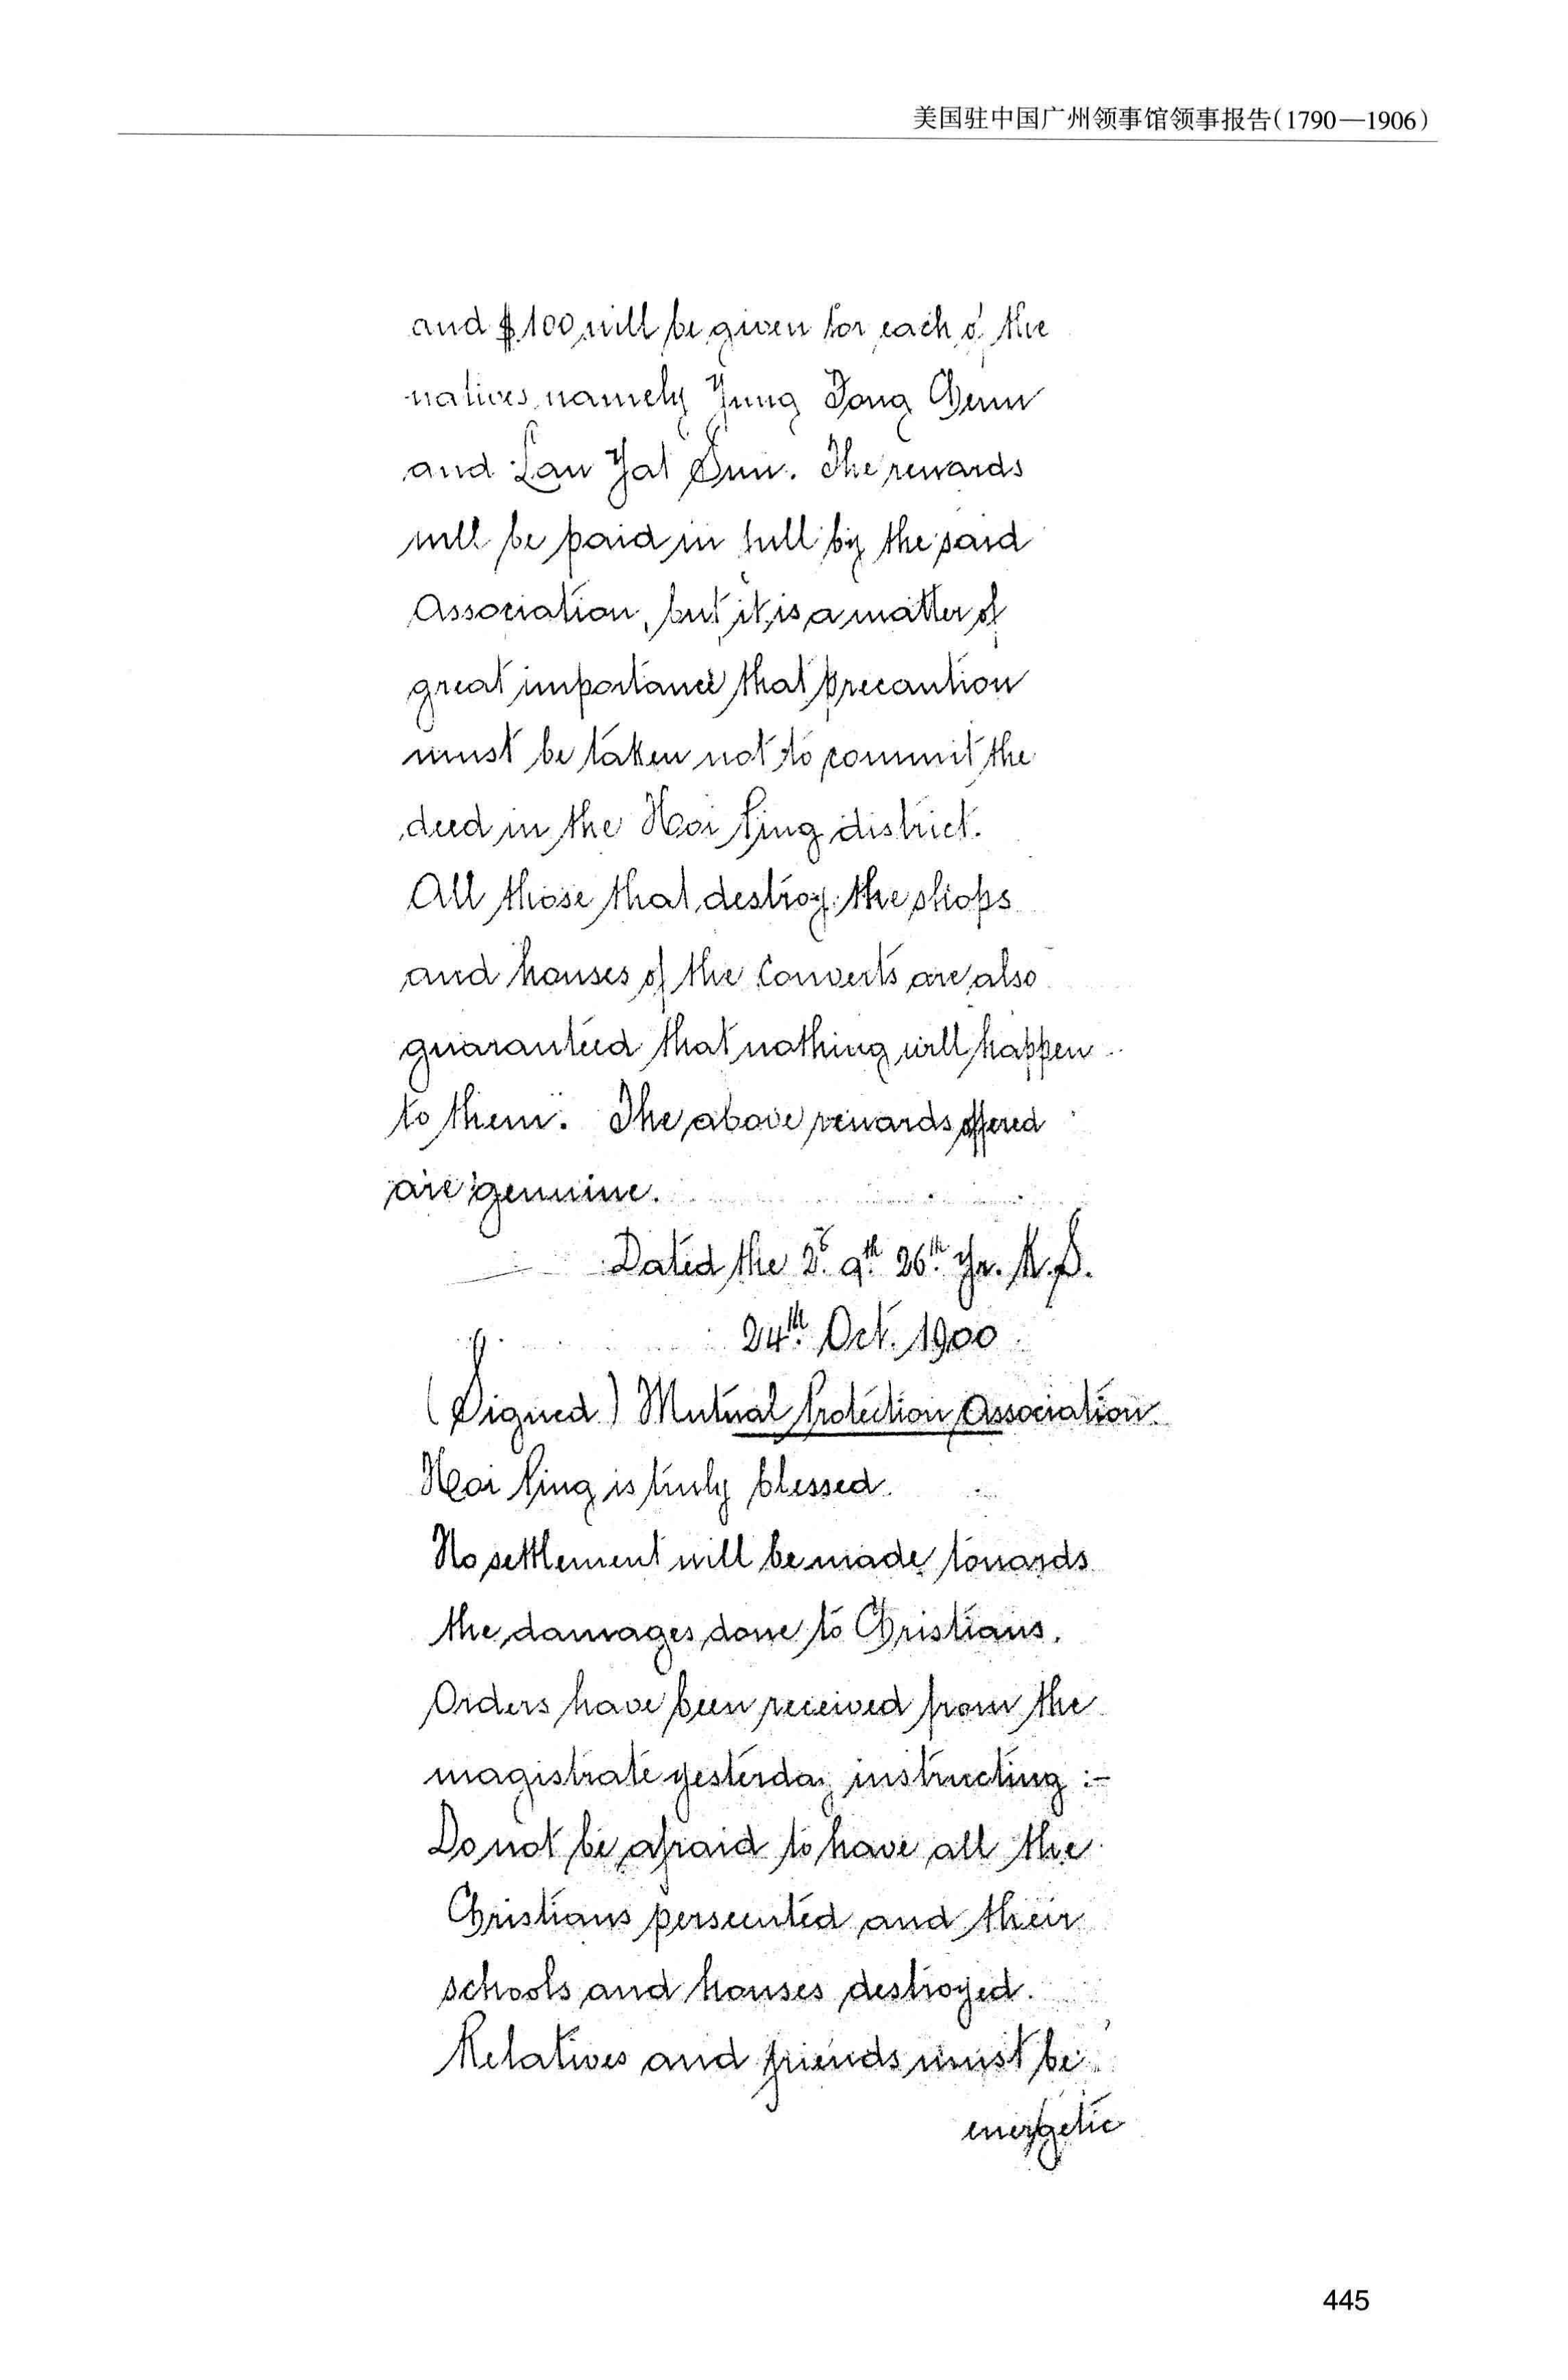 美国驻中国广州领事馆领事报告(1790—1906)
and $100 will be given for each of the
natives namely Yung Tong Chun
and Lau Yat Sun. The rewards
will be paid in full by the said
Association, but it is a matter of
great importance that precaution
must be taken not to commit the
deed in the Hoi Ping district.
All those that destroy the shops
and houses of the Converts are also
guaranteed that nothing will happen
to them. The above rewards offered
are genuine.
Dated the 2d. 9th. 26th. Yr. K.S.
24th. Oct. 1900
(Signed.) Mutual Protection Association.
Hoi Ping is truly blessed.
No settlement will be made towards
the damages done to Christians.
Orders have been received from the
magistrate yesterday instructing :-
Do not be afraid to have all the
Christians persecuted and their
schools and houses destroyed.
Relatives and friends must be
energetic
445